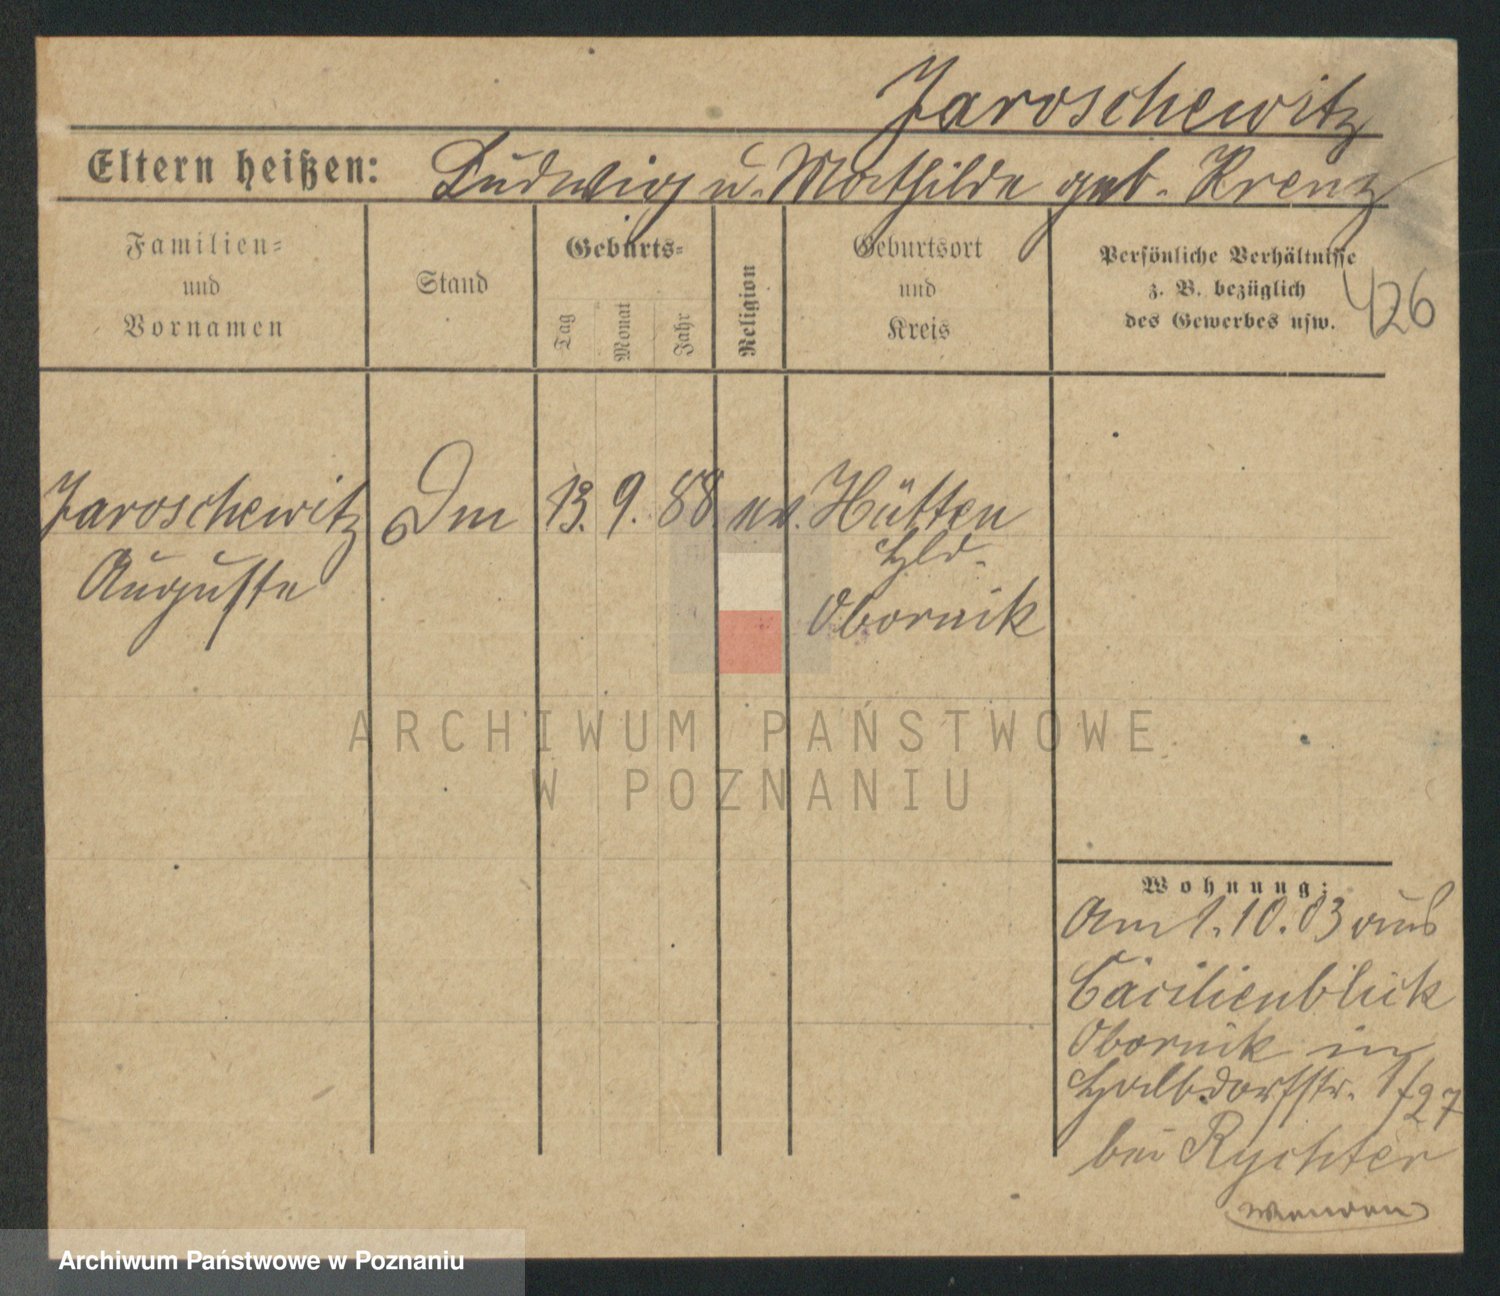 Jaroschewitz
Eltern heißen: Ludwig u. Mathilde geb. Krenz
Familien-
und
Vornamen
Stand
Geburts-
Tag
Monat
Jahr
Religion
Geburtsort
und
Kreis
Persönliche Verhältnisse
z. B. bezüglich
des Gewerbes usw.
426
Jaroschewitz
Auguste
Dm
13. 9. 88
ev.
Hütten
Hld.
Obornik
ARCHIWUM PAŃSTWOWE
W POZNANIU
Wohnung:
Am 1. 10. 03 aus
Cäcilienblick
Obornik in
Halbdorfstr. 1/27
bei Rychter
wenden
Archiwum Państwowe w Poznaniu